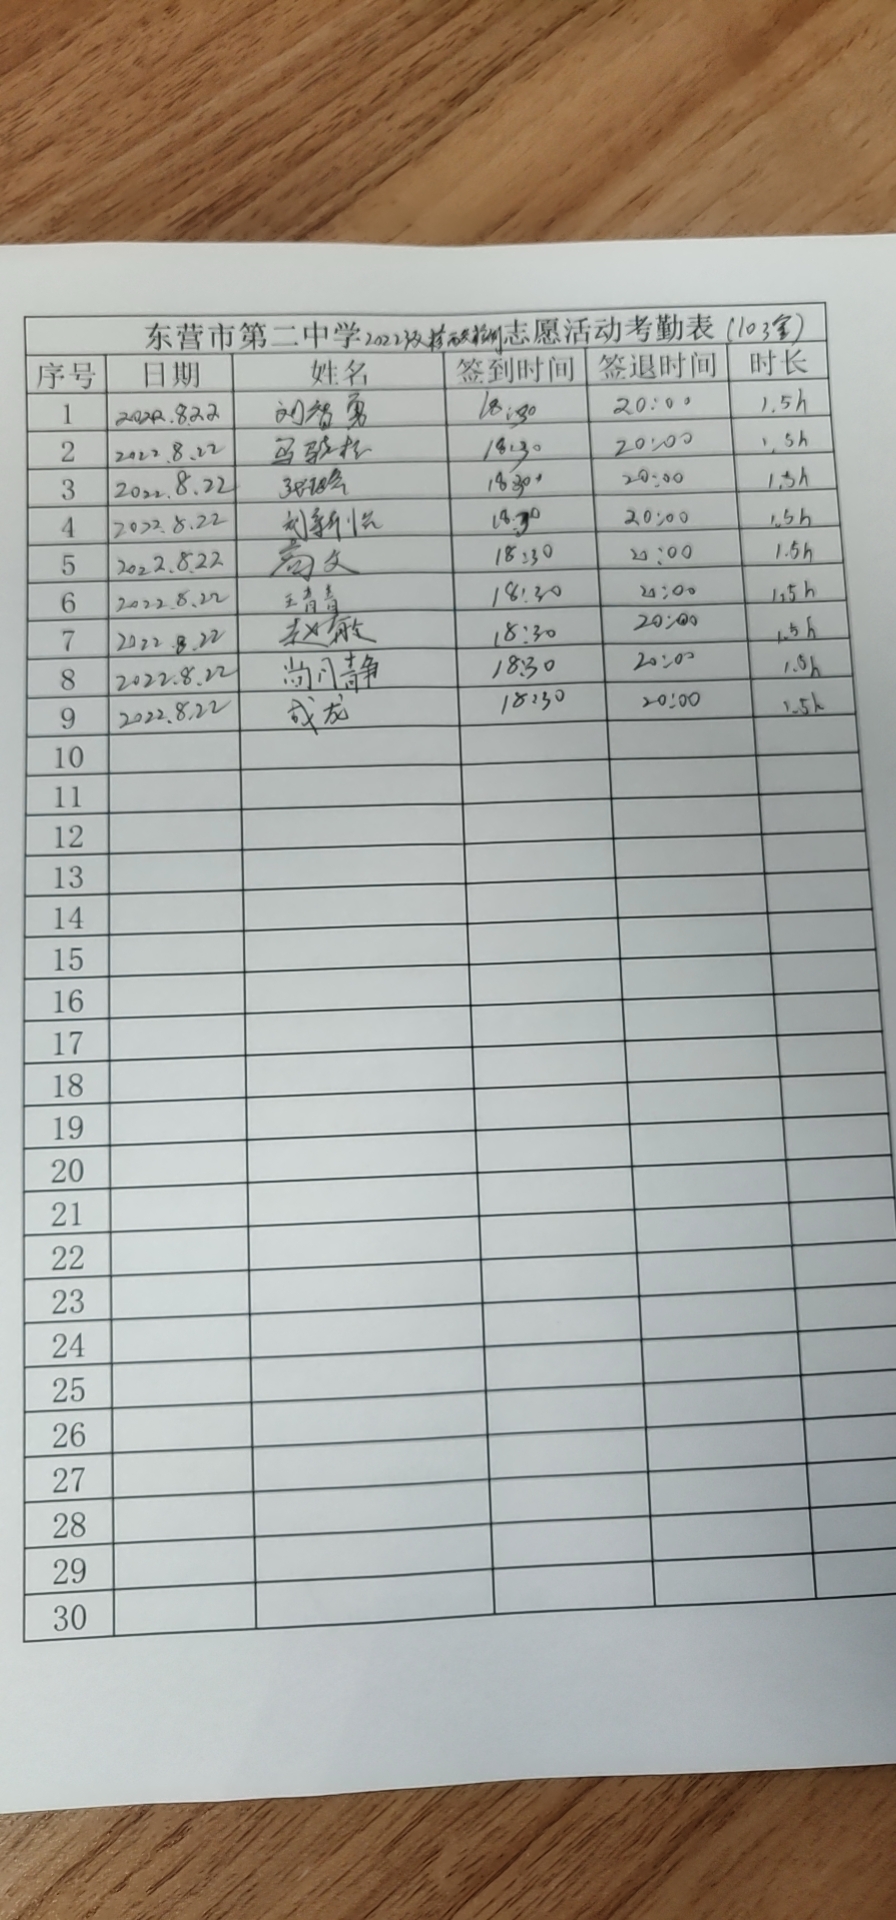 东营市第二中学2022级核酸检测志愿活动考勤表(103室)
序号 日期 姓名 签到时间 签退时间 时长
1 2022.8.22 刘智勇 18:30 20:00 1.5h
2 2022.8.22 18:30 20:00 1.5h
3 2022.8.22 18:30 20:00 1.5h
4 2022.8.22 刘新 18:30 20:00 1.5h
5 2022.8.22 高文 18:30 20:00 1.5h
6 2022.8.22 王青青 18:30 20:00 1.5h
7 2022.8.22 赵敏 18:30 20:00 1.5h
8 2022.8.22 尚月静 18:30 20:00 1.5h
9 2022.8.22 成龙 18:30 20:00 1.5h
10
11
12
13
14
15
16
17
18
19
20
21
22
23
24
25
26
27
28
29
30